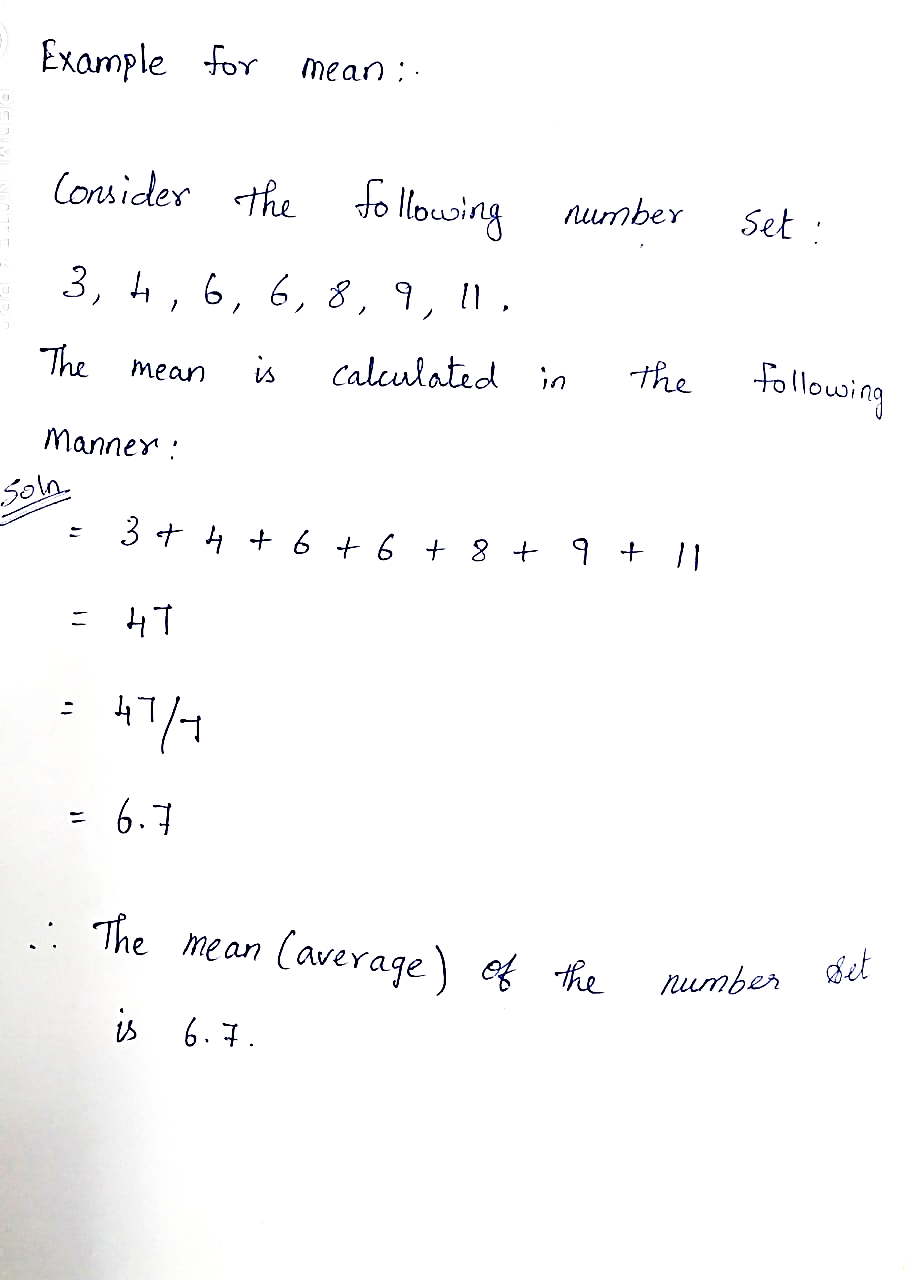 Example for mean :.
Consider the following number set :
3, 4, 6, 6, 8, 9, 11.
The mean is calculated in the following
Manner :
Soln
= 3 + 4 + 6 + 6 + 8 + 9 + 11
= 47
= 47/7
= 6.7
∴ The mean (average) of the number set
is 6.7.